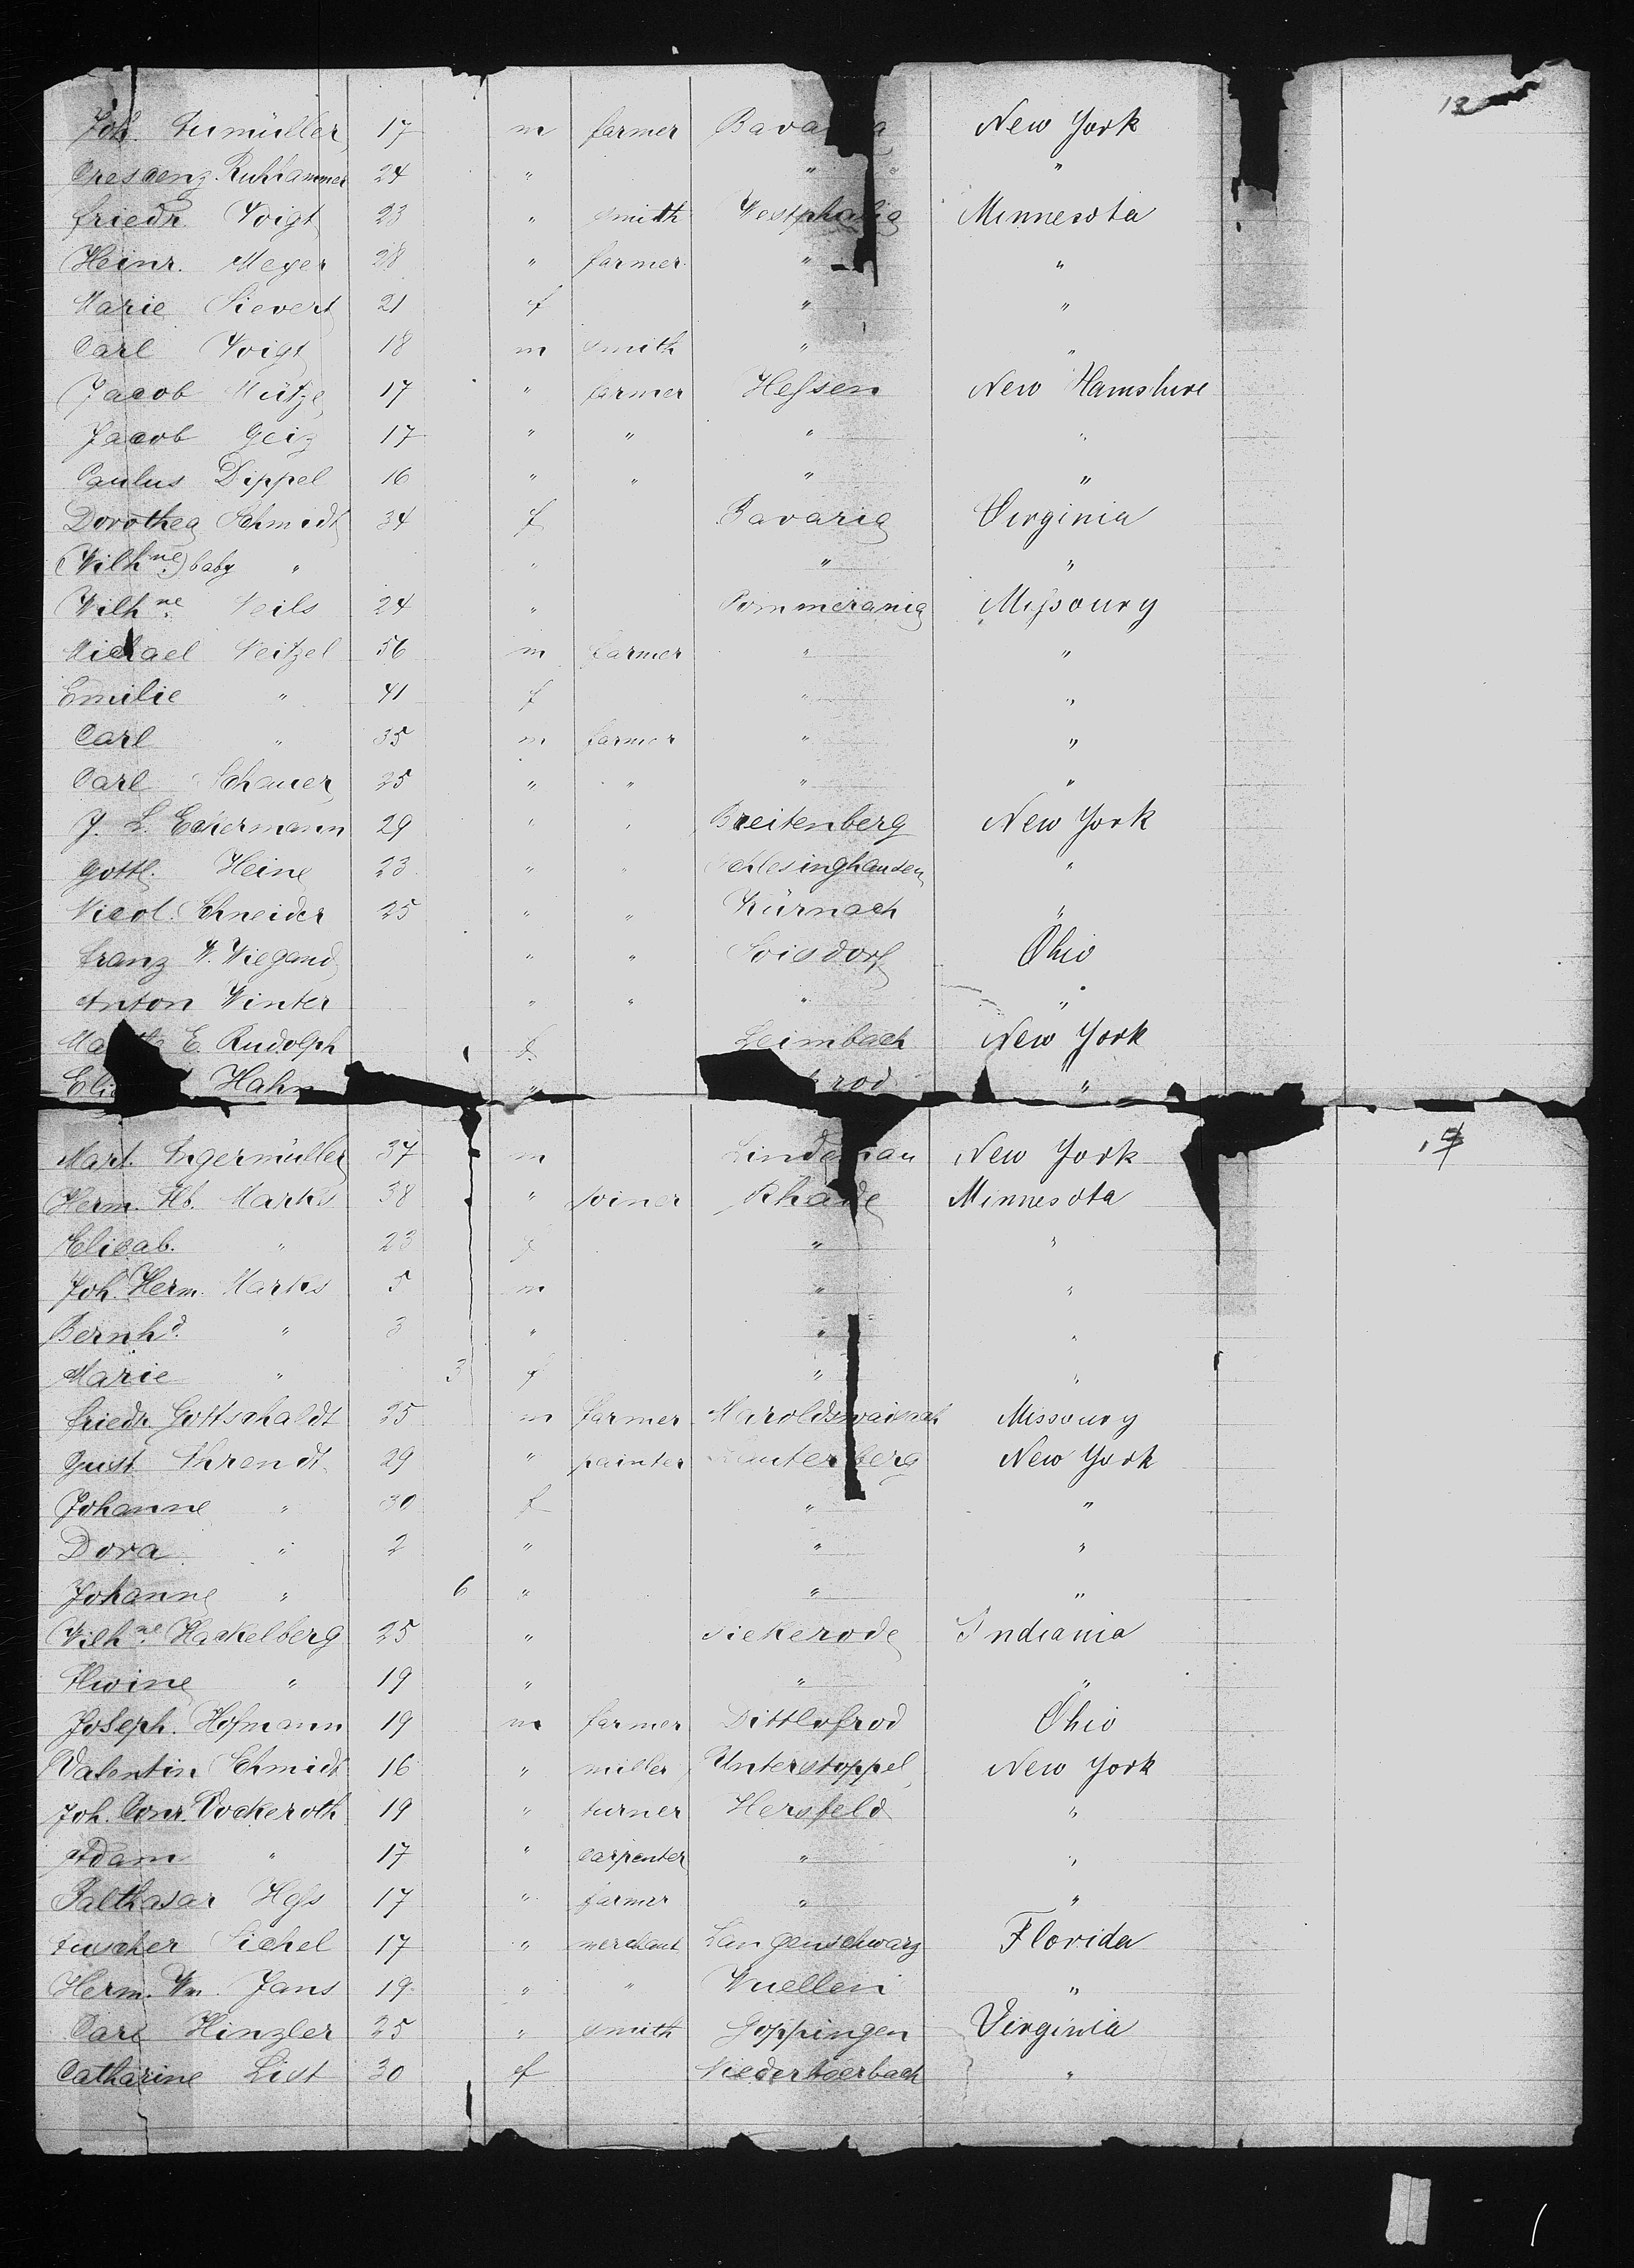 12
Joh. 17 m farmer Bava a New York
Crescenz Ruhhammer 24 " " " "
Friedr Voigt 23 " smith Westphalia Minnesota
Heinr. Meyer 28 " farmer " "
Marie Sievert 21 f " "
Carl Voigt 18 m smith " "
Jacob Mütze 17 " farmer Hessen New Hamshire
Jacob Geiz 17 " " " "
Paulus Dippel 16 " " " "
Dorothea Schmidt 34 f Bavaria Virginia
(Wilhne) baby " " " "
Wilhne Neils 24 " Pommerania Missoury
Michael Neitzel 56 m farmer " "
Emilie " 41 f " "
Carl " 35 m farmer " "
Carl Schauer 25 " " " "
J. L. Eckermann 29 " " Breitenberg New York
Gottl. Heine 23 " " "
Nicol. Schneider 25 " " Kürnach "
Franz W. Wiegand " " Soisdorf Ohio
Anton Winter " " " "
Ma E. Rudolph f. Leimbach New York
Eli Hahn " rod "
Mart. Ingermüller 37 m Linde au New York
Herm. Hb. Marks 38 " joiner Rhade Minnesota
Elisab. " 23 f " "
Joh. Herm. Marks 5 m " "
Bernhd. " 3 " " "
Marie " 3 f " "
Friedr. Gottschaldt 25 m farmer Missoury
Gust Ahrendt 29 " painter Lauterberg New York
Johanne " 30 f " "
Dora " 2 " " "
Johanne " 6 " " "
Wilhne. Hackelberg 25 " Siekerode Indiania
Alwine " 19 " " "
Joseph. Hofmann 19 m farmer Dittlofrod Ohio
Valentin Schmidt 16 " miller Unterstoppel New York
Joh. Conr. Vockeroth 19 " turner Hersfeld "
Adam " 17 " carpenter " "
Balthasar Hess 17 " farmer " "
Sichel 17 " merchant Langenschwarz Florida
Herm. Wm. Jans 19 " " Wuellen "
Carl Hinzler 25 " smith Goppingen Virginia
Catharine List 30 f "